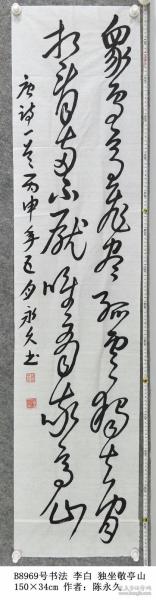 众鸟高飞尽孤云独去闲
相看两不厌唯有敬亭山
唐诗一首丙申年五月永久书
B8969号书法 李白 独坐敬亭山
150×34cm 作者：陈永久